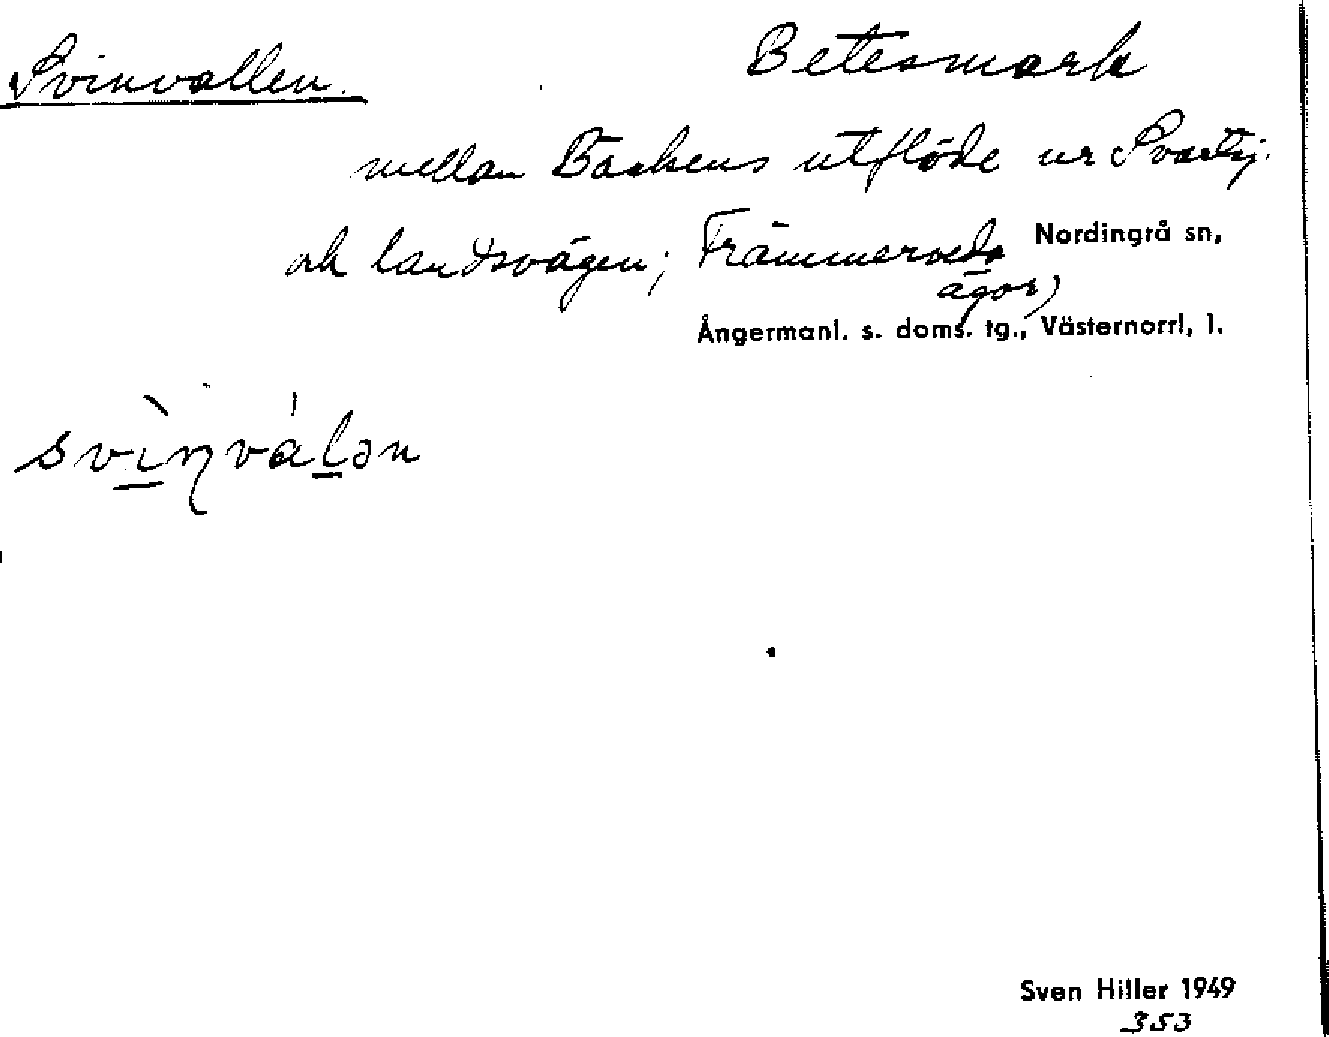 Svinvallen. Betesmark
mellan Bäckens utflöde ur Svartsj.
och landsvägen; Främmerveda Nordingrå sn,
ägor)
Ångermanl. s. doms. tg., Västernorrl, l.
svìn̩váḻən
Sven Hiller 1949
353